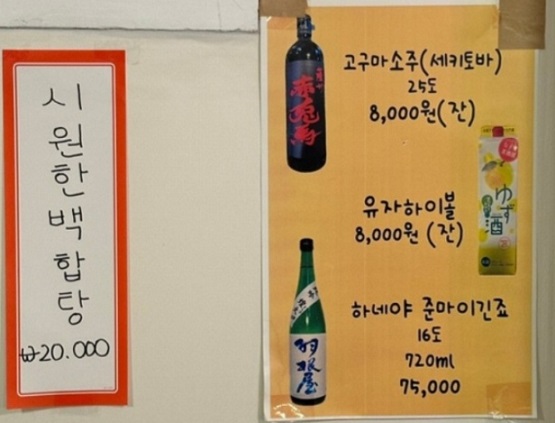 시원한백합탕
₩20.000
고구마소주(세키토바)
25도
8,000원(잔)
赤兎馬
유자하이볼
8,000원 (잔)
ゆず
酒
하네야 준마이긴죠
16도
720ml
75,000
羽根屋